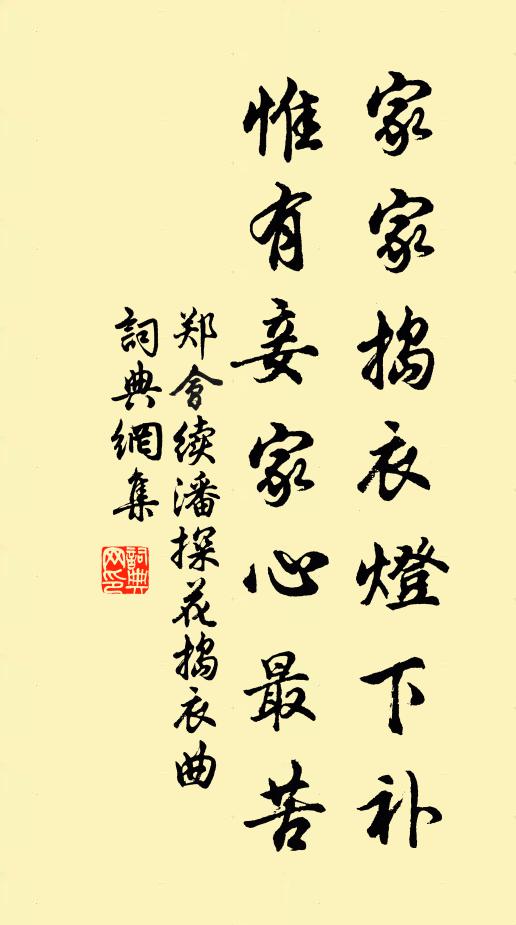 家家捣衣燈下补
惟有妾家心最苦
郑會续潘探花捣衣曲
詞典網集
詞典網印